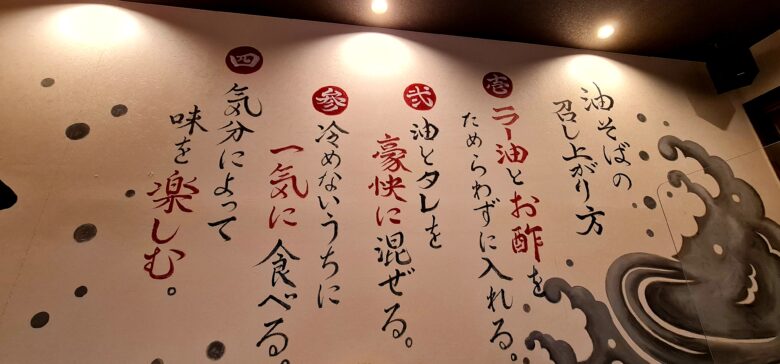 油そばの
召し上がり方
壱
ラー油とお酢を
ためらわずに入れる。
弐
油とタレを
豪快に混ぜる。
参
冷めないうちに
一気に食べる。
四
気分によって
味を楽しむ。